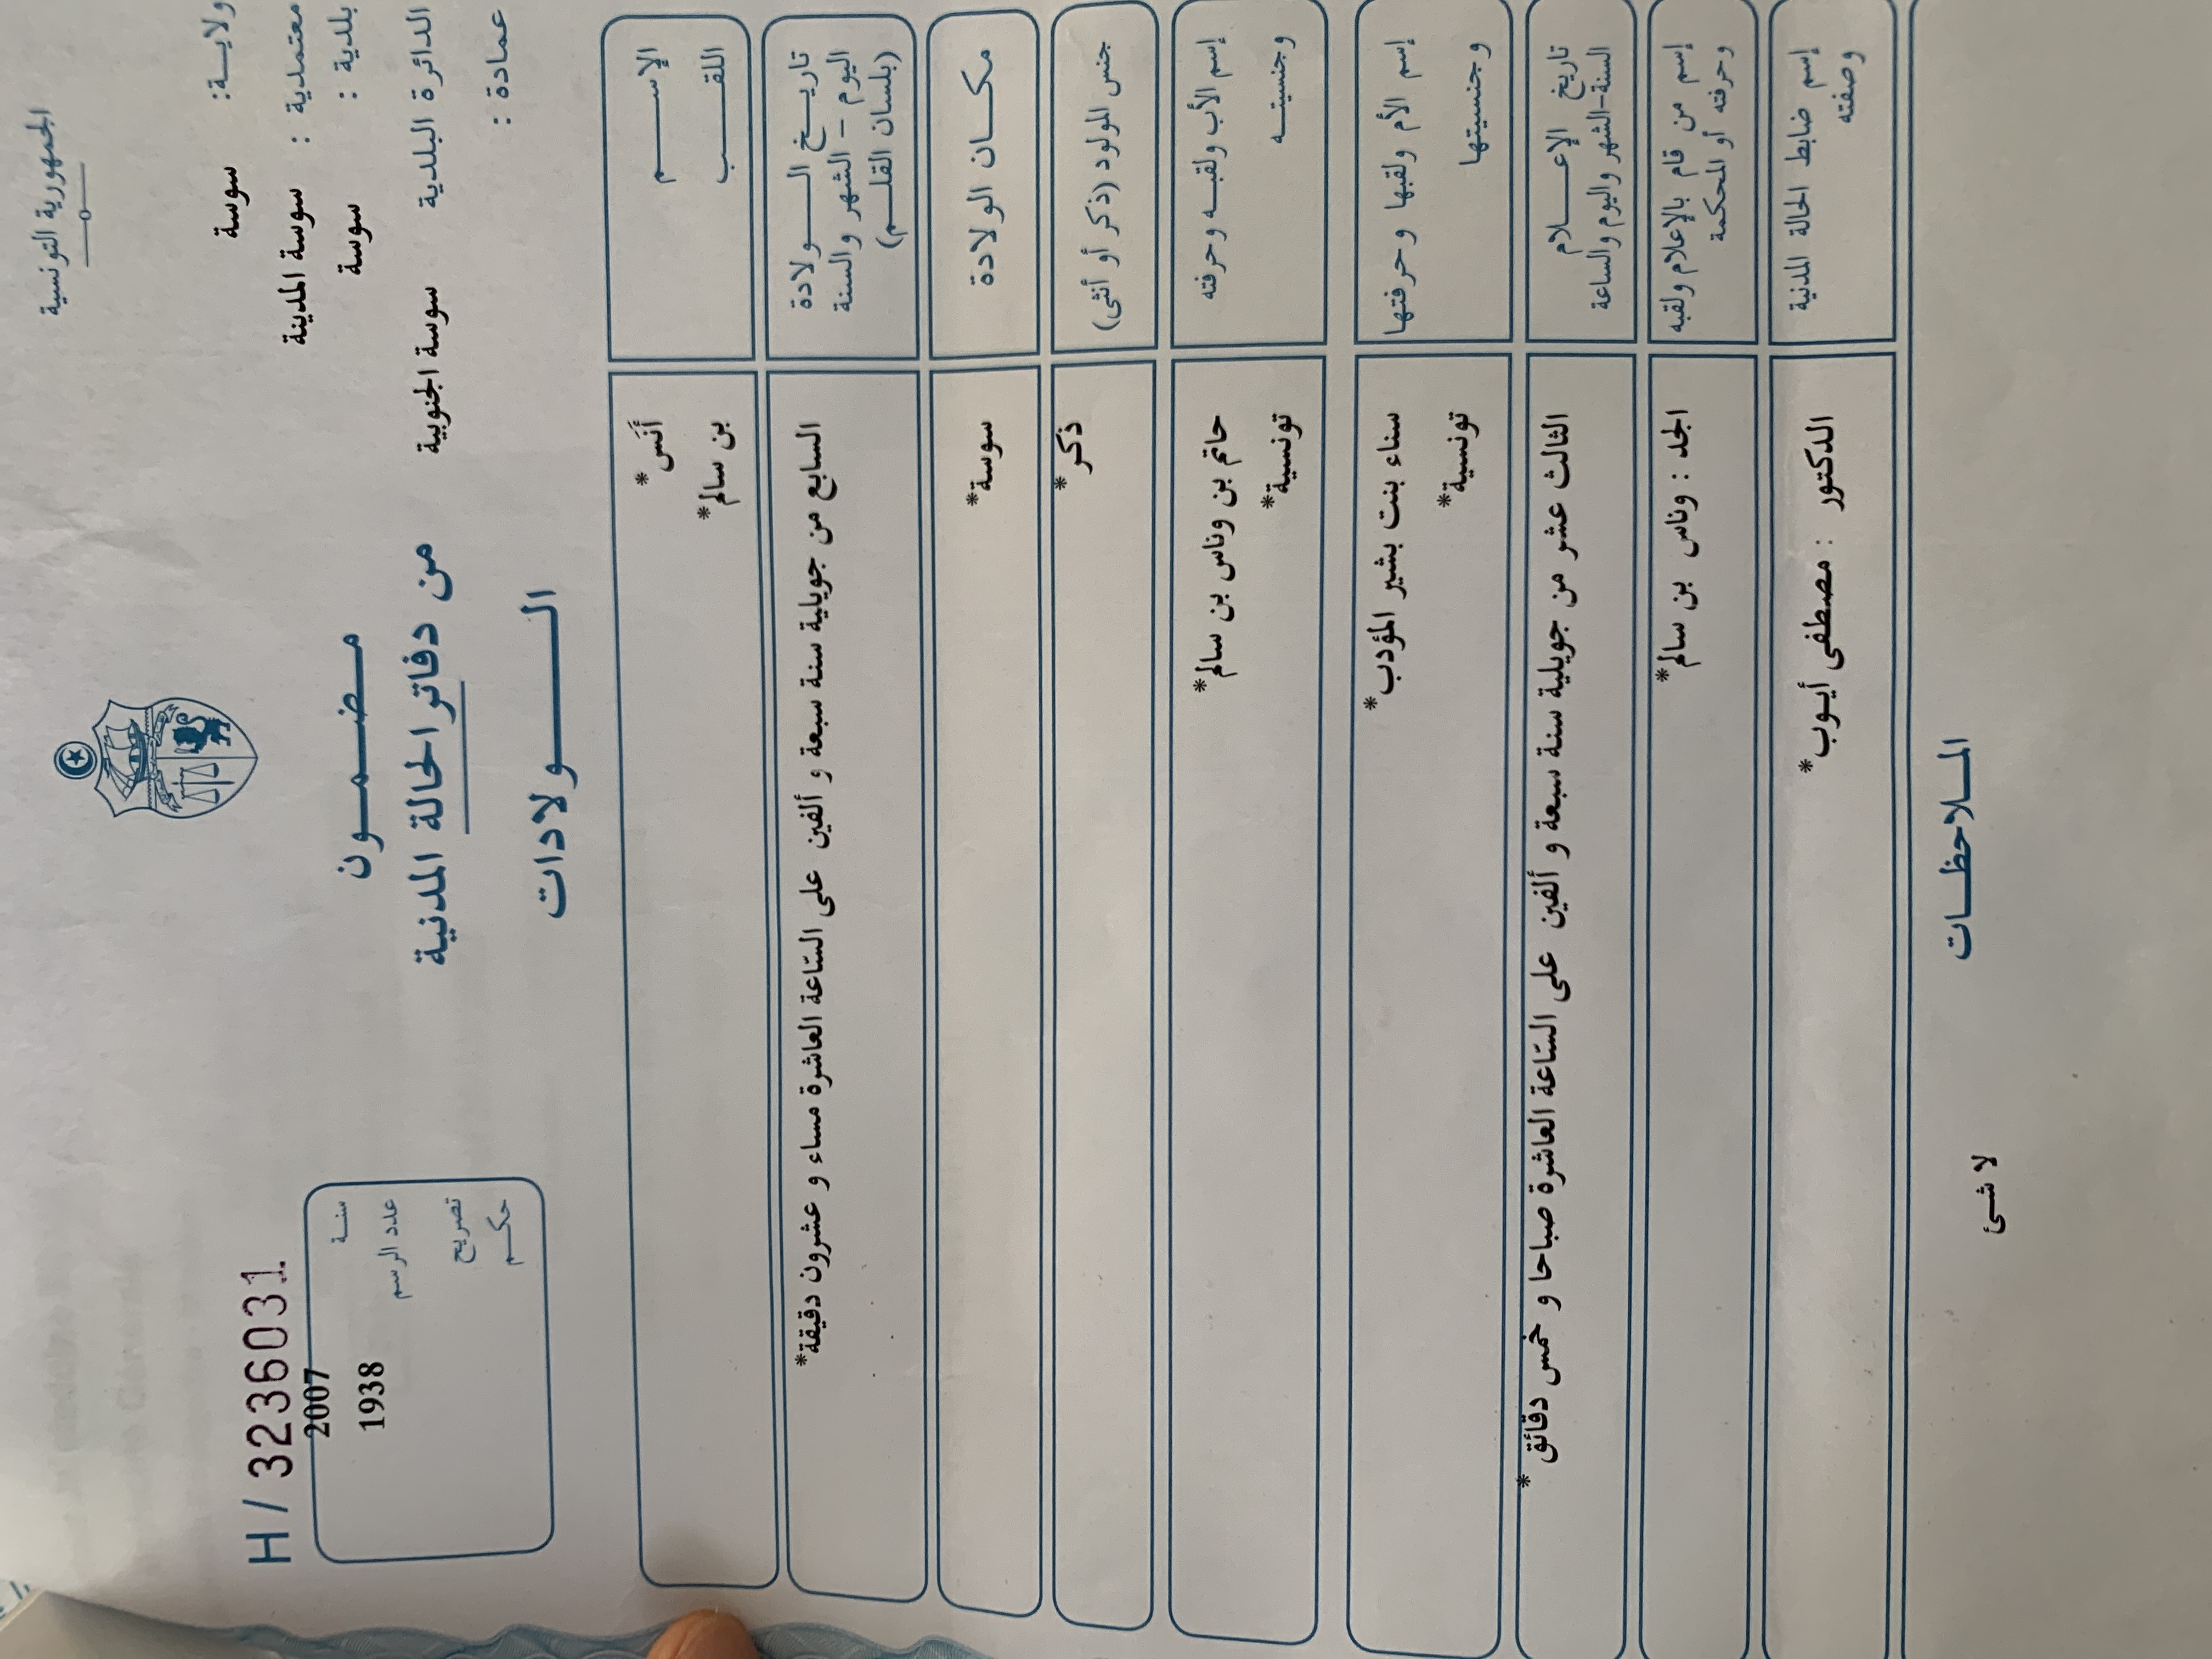 الجمهورية التونسية
ولايـة: سوسة
معتمدية : سوسة المدينة
بلدية : سوسة
الدائرة البلدية سوسة الجنوبية
عمادة :
مـضـمـون
من دفاتر الحالة المدنية
الـولادات
H / 3236031
سنـة 2007
عدد الرسم 1938
تصريح
حكـم
الإسـم أَنَس*
اللقـب بن سالم*
تاريـخ الـولادة
اليوم - الشهر والسنة
(بلسان القلـم)
السابع من جويلية سنة سبعة و ألفين على السّاعة العاشرة مساء و عشرون دقيقة*
مكـان الولادة سوسة*
جنس المولود (ذكر أو أنثى) ذكر*
إسم الأب ولقبـه وحرفته حاتم بن وناس بن سالم*
وجنسيتـه تونسية*
إسم الأم ولقبها وحرفتها سناء بنت بشير المؤدب*
وجنسيتها تونسية*
تاريخ الإعـلام
السنة-الشهر واليوم والساعة
الثالث عشر من جويلية سنة سبعة و ألفين على السّاعة العاشرة صباحا و خمس دقائق *
إسم من قام بالإعلام ولقبه
وحرفته أو المحكمة
الجد : وناس بن سالم*
إسم ضابط الحالة المدنية
وصفته
الدكتور : مصطفى أيوب*
المـلاحظـات
لا شئ